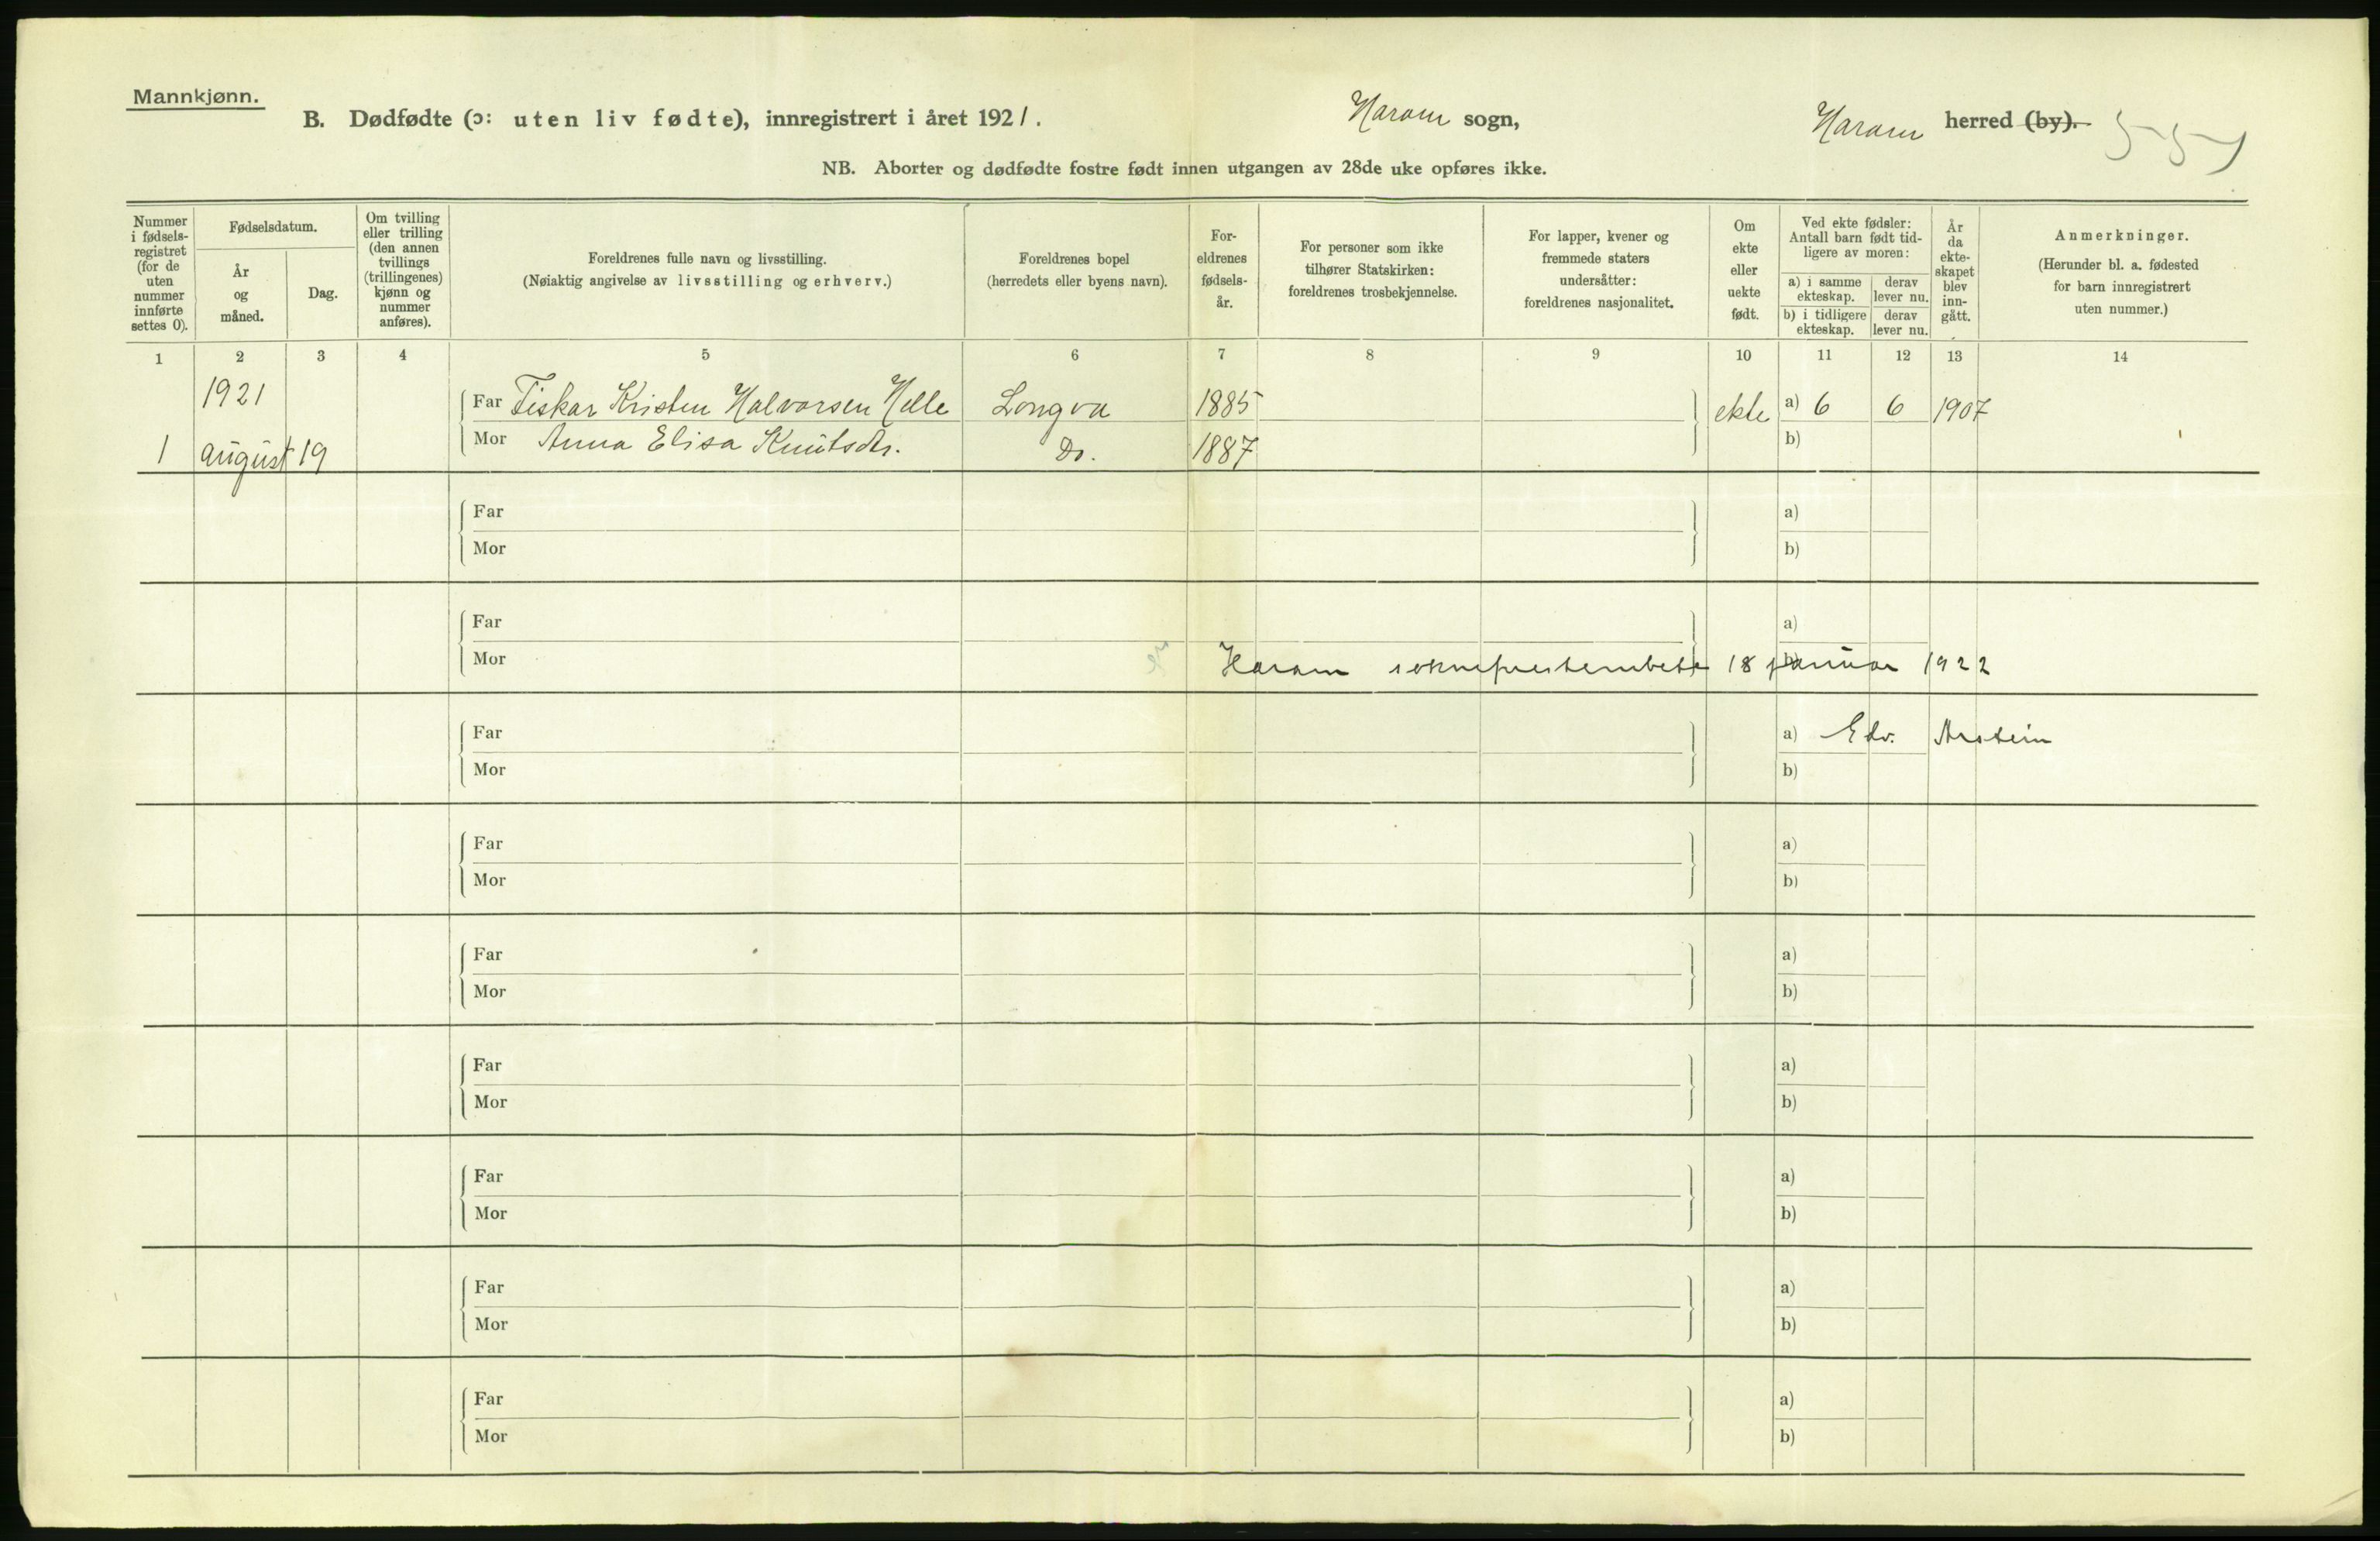 Mannkjønn.
B. Dødfødte (ɔ: uten liv fødte), innregistrert i året 1921. Haram sogn, Haram herred (by).
NB. Aborter og dødfødte fostre født innen utgangen av 28de uke opføres ikke.
Nummer i fødselsregistret (for de uten nummer innførte settes 0).
Fødselsdatum.
År og måned.
Dag.
Om tvilling eller trilling (den annen tvillings (trillingenes) kjønn og nummer anføres).
Foreldrenes fulle navn og livsstilling.
(Nøiaktig angivelse av livsstilling og erhverv.)
Foreldrenes bopel
(herredets eller byens navn).
Foreldrenes fødselsår.
For personer som ikke tilhører Statskirken: foreldrenes trosbekjennelse.
For lapper, kvener og fremmede staters undersåtter: foreldrenes nasjonalitet.
Om ekte eller uekte født.
Ved ekte fødsler: Antall barn født tidligere av moren:
a) i samme ekteskap. derav lever nu.
b) i tidligere ekteskap. derav lever nu.
År da ekteskapet blev inngått.
Anmerkninger.
(Herunder bl. a. fødested for barn innregistrert uten nummer.)
1 2 3 4 5 6 7 8 9 10 11 12 13 14
1921 Far Fiskar Kristen Halvorsen Helle Longva 1885 ekte a) 6 6 1907
1 august 19 Mor Anna Elisa Knutsdtr. Do. 1887 b)
Far a)
Mor b)
Far a)
Mor Haram sokneprestembete 18 januar 1922 b)
Far a) Edv. Arstein
Mor b)
Far a)
Mor b)
Far a)
Mor b)
Far a)
Mor b)
Far a)
Mor b)
Far a)
Mor b)
Far a)
Mor b)